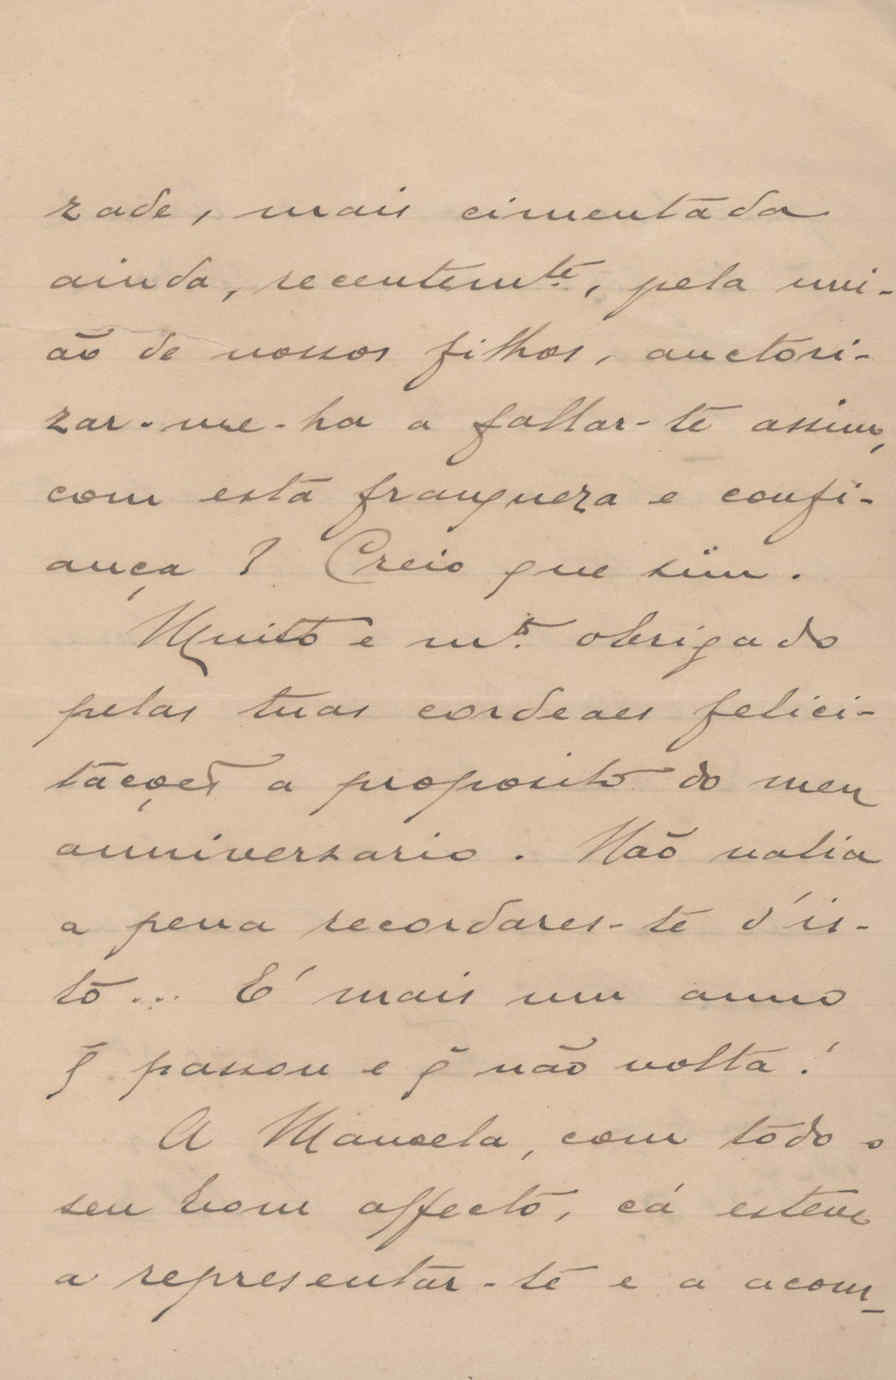 zade, mais cimentada
ainda, recentemte., pela uni-
ão de nossos filhos, auctori-
zar-me-ha a fallar-te assim,
com esta franqueza e confi-
ança? Creio que sim.
Muito e mto. obrigado
pelas tuas cordeaes felici-
tações a proposito do meu
anniversario. Não valia
a pena recordares-te d'is-
to... É mais um anno
q̃ passou e q̃ não volta!
A Manoela, com todo o
seu bom affecto, cá esteve
a representar-te e a acom-